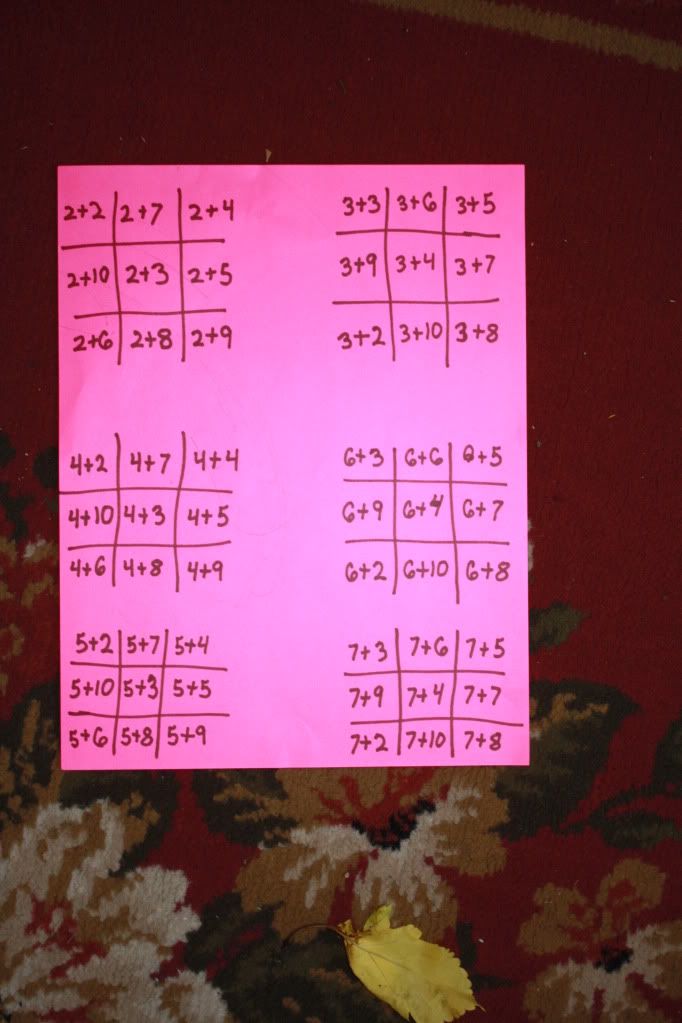 2+2 2+7 2+4
2+10 2+3 2+5
2+6 2+8 2+9
3+3 3+6 3+5
3+9 3+4 3+7
3+2 3+10 3+8
4+2 4+7 4+4
4+10 4+3 4+5
4+6 4+8 4+9
6+3 6+6 6+5
6+9 6+4 6+7
6+2 6+10 6+8
5+2 5+7 5+4
5+10 5+3 5+5
5+6 5+8 5+9
7+3 7+6 7+5
7+9 7+4 7+7
7+2 7+10 7+8